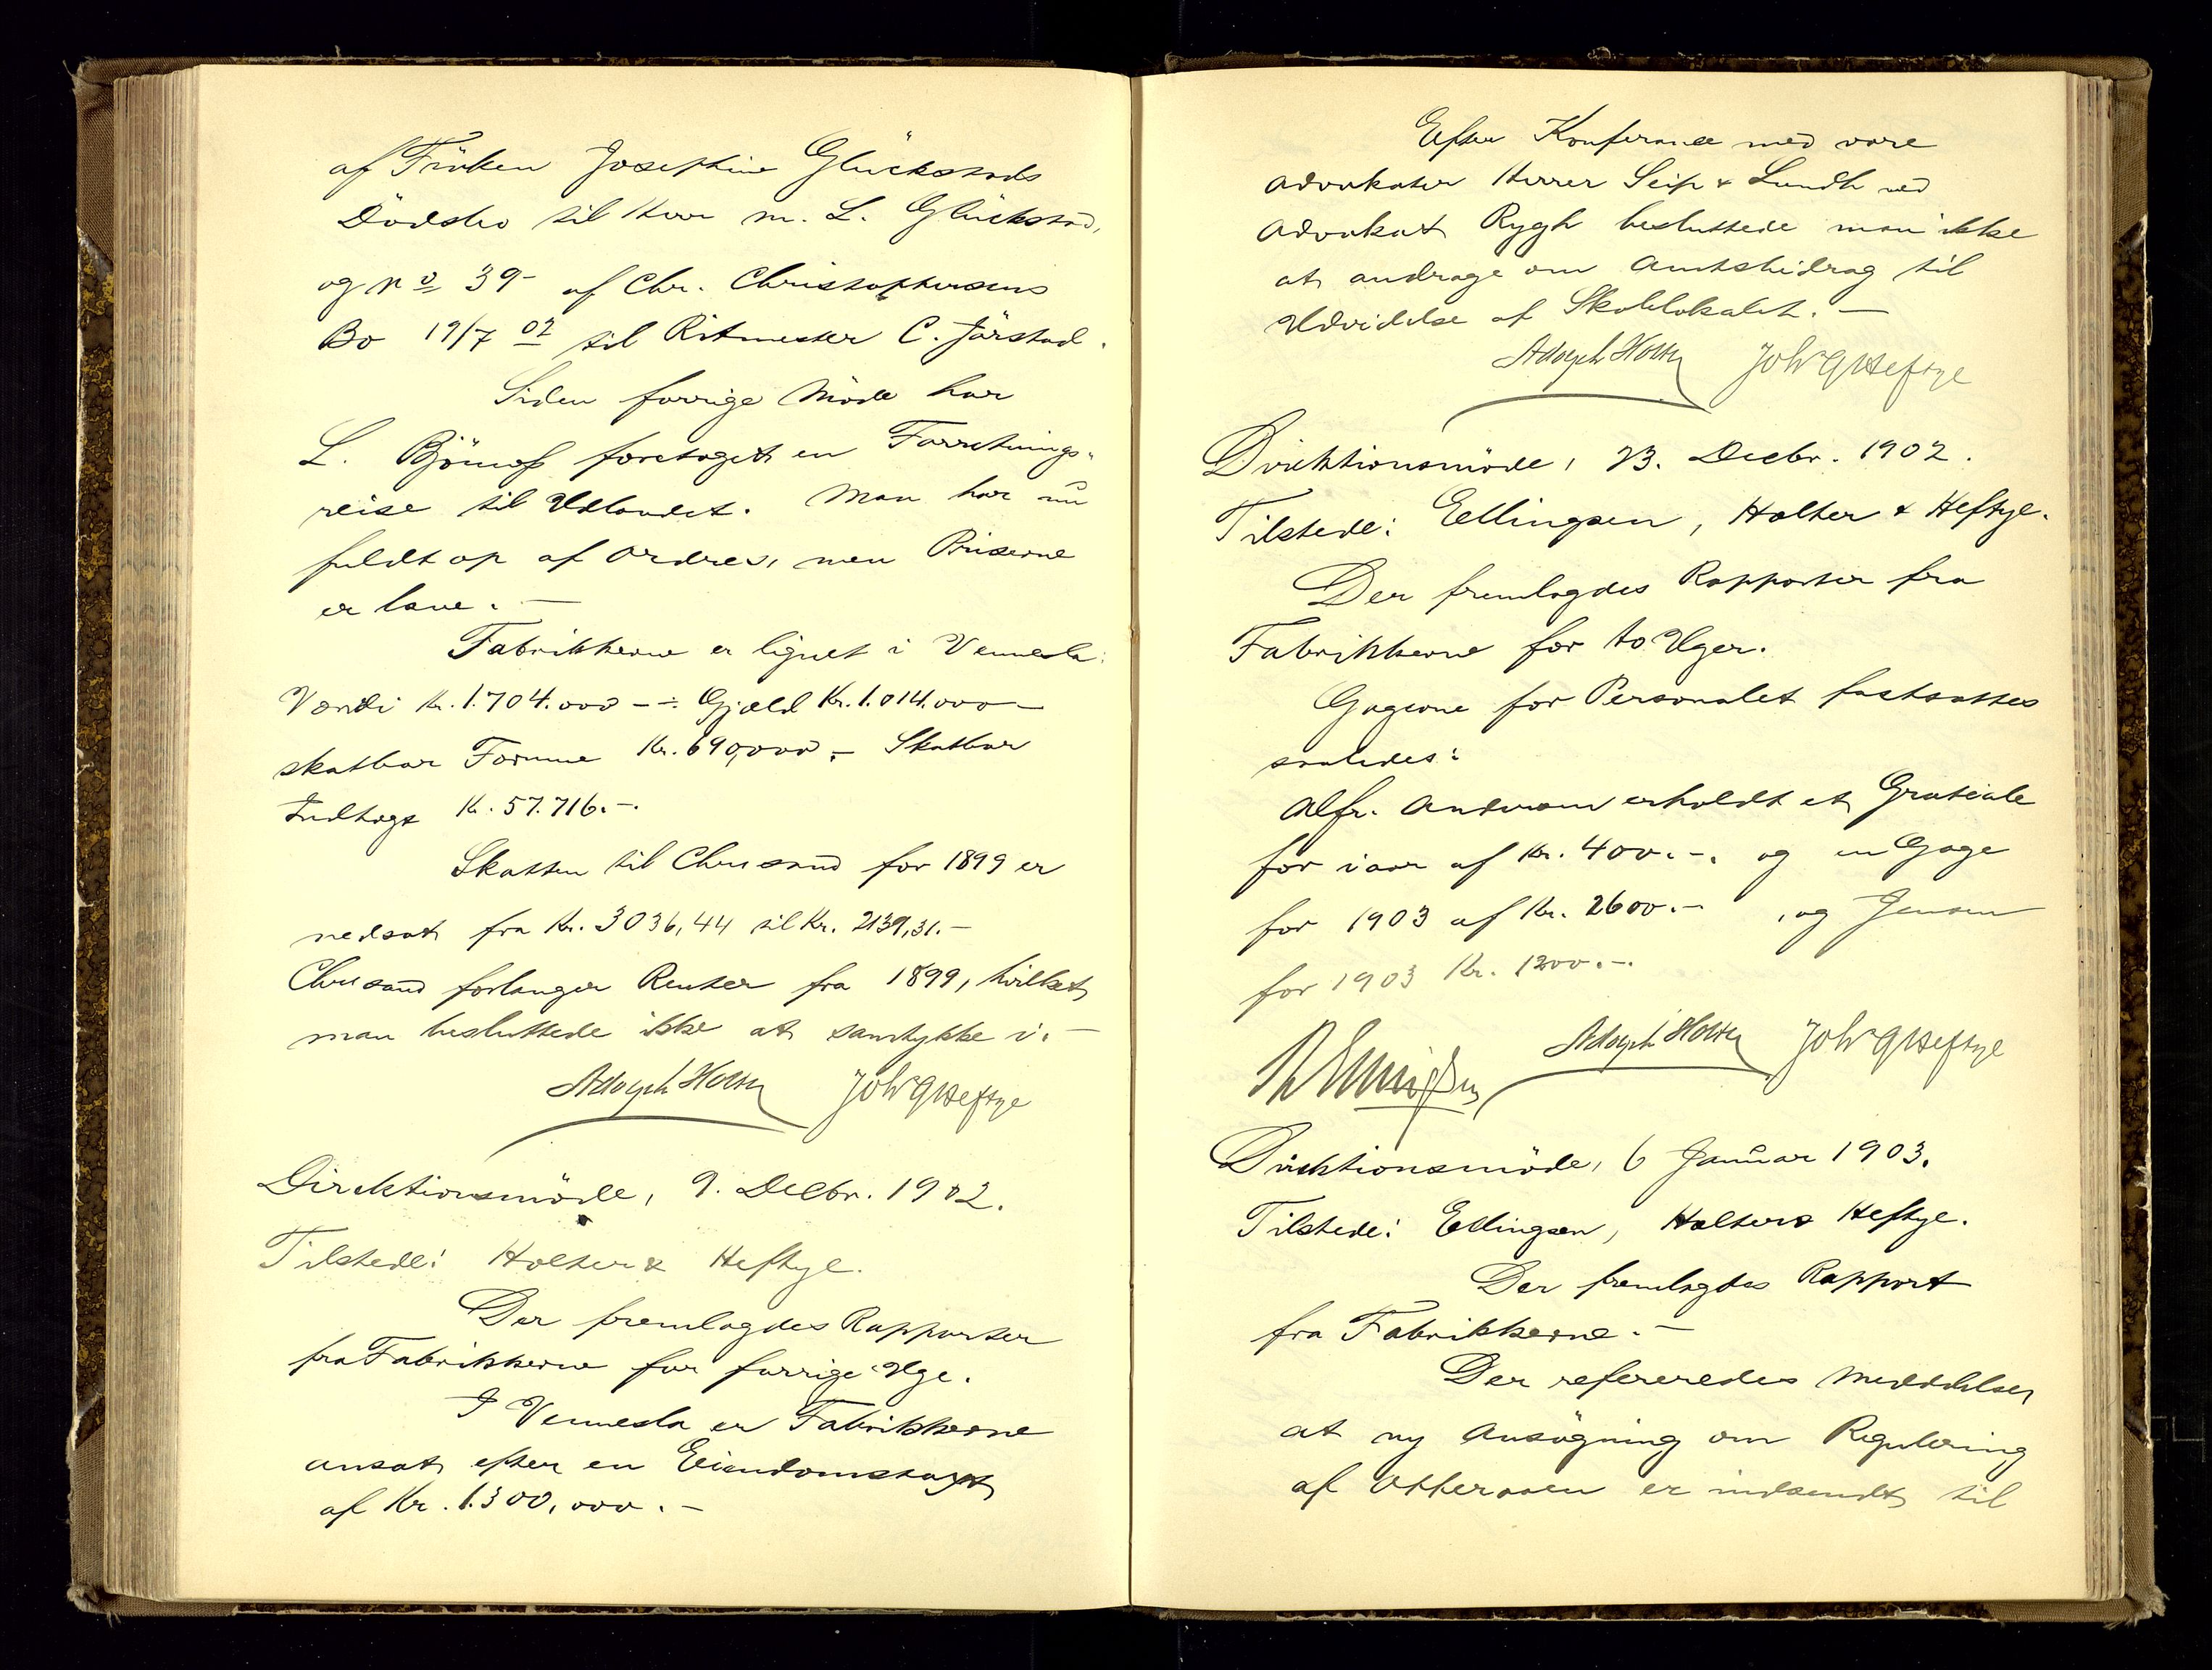 af Fröken Josephine Glückstads
Dödsbo til Herr M. L. Glückstad,
og No 39 af Chr. Christophersens
Bo 19/7 02 til Ritmester C. Jörstad.
Siden forrige Möde har
L. Björnoß foretaget en Forretnings-
reise til Udlandet. Man har nu
fuldt op af Ordres, men Priserne
er lave. —
Fabrikkerne er lignet i Vennesla:
Værdi Kr. 1.704.000 — ÷ Gjæld Kr. 1.014.000 —
skatbar Formue Kr. 690,000. — Skatbar
Indtægt Kr. 57.716. —.
Skatten til Chrusand for 1899 er
nedsat fra Kr. 3036,44 til Kr. 2139,31. —
Chrusand forlanger Renter fra 1899, hvilket
man besluttede ikke at samtykke i. —
Adolph Holter Joh G Heftye
Direktionsmöde, 9. Decbr. 1902.
Tilstede: Holter & Heftye.
Der fremlagdes Rapporter
fra Fabrikkerne for forrige Uge.
I Vennesla er Fabrikkerne
ansat efter en Eiendomstaxt
af Kr. 1.300,000. —
Efter Konferance med vore
Advokater Herrer Seip & Lundh ved
Advokat Rygh besluttede man ikke
at andrage om Amtsbidrag til
Udvidelse af Skolelokalet. —
Adolph Holter Joh G Heftye
Direktionsmöde, 23. Decbr. 1902.
Tilstede: Ellingsen, Holter & Heftye.
Der fremlagdes Rapporter fra
Fabrikkerne for to Uger.
Gagerne for Personalet fastsattes
saaledes:
Alfr. Andersen erholdt et Gratiale
for iaar af Kr. 400. —. og en Gage
for 1903 af Kr. 2600. — , og Jensen
for 1903 Kr. 1200. —.
Ellingsen Adolph Holter Joh G Heftye
Direktionsmöde, 6 Januar 1903.
Tilstede: Ellingsen, Holter & Heftye.
Der fremlagdes Rapport
fra Fabrikkerne. —
Der refereredes Meddelelse,
at ny Ansögning om Regulering
af Otteraaen er indsendt til